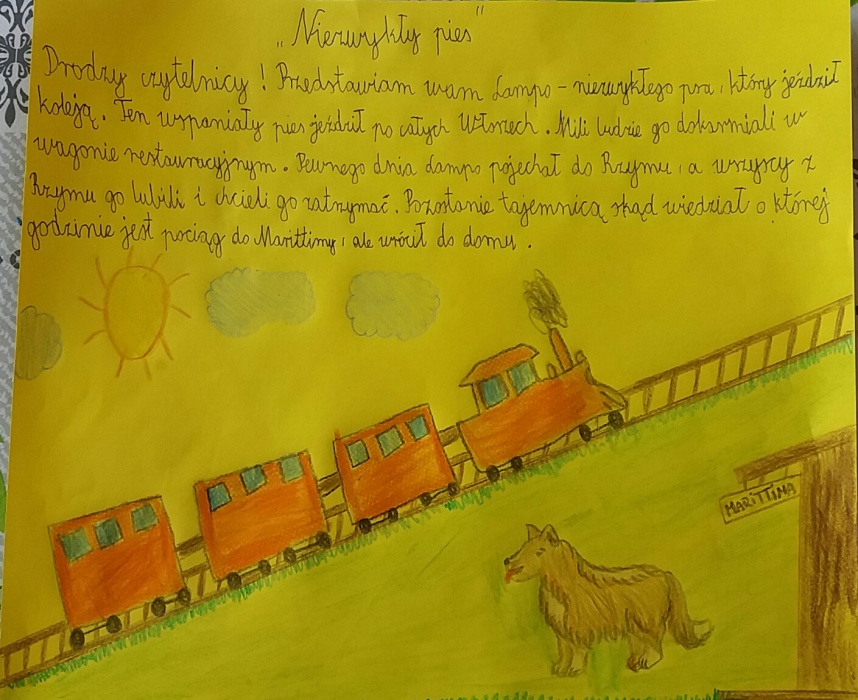 „Niezwykły pies”
Drodzy czytelnicy! Przedstawiam wam Lampo – niezwykłego psa, który jeździł
koleją. Ten wspaniały pies jeździł po całych Włoszech. Mili ludzie go dokarmiali w
wagonie restauracyjnym. Pewnego dnia Lampo pojechał do Rzymu, a wszyscy z
Rzymu go lubili i chcieli go zatrzymać. Pozostanie tajemnicą skąd wiedział o której
godzinie jest pociąg do Marittimy, ale wrócił do domu.
MARITTIMA